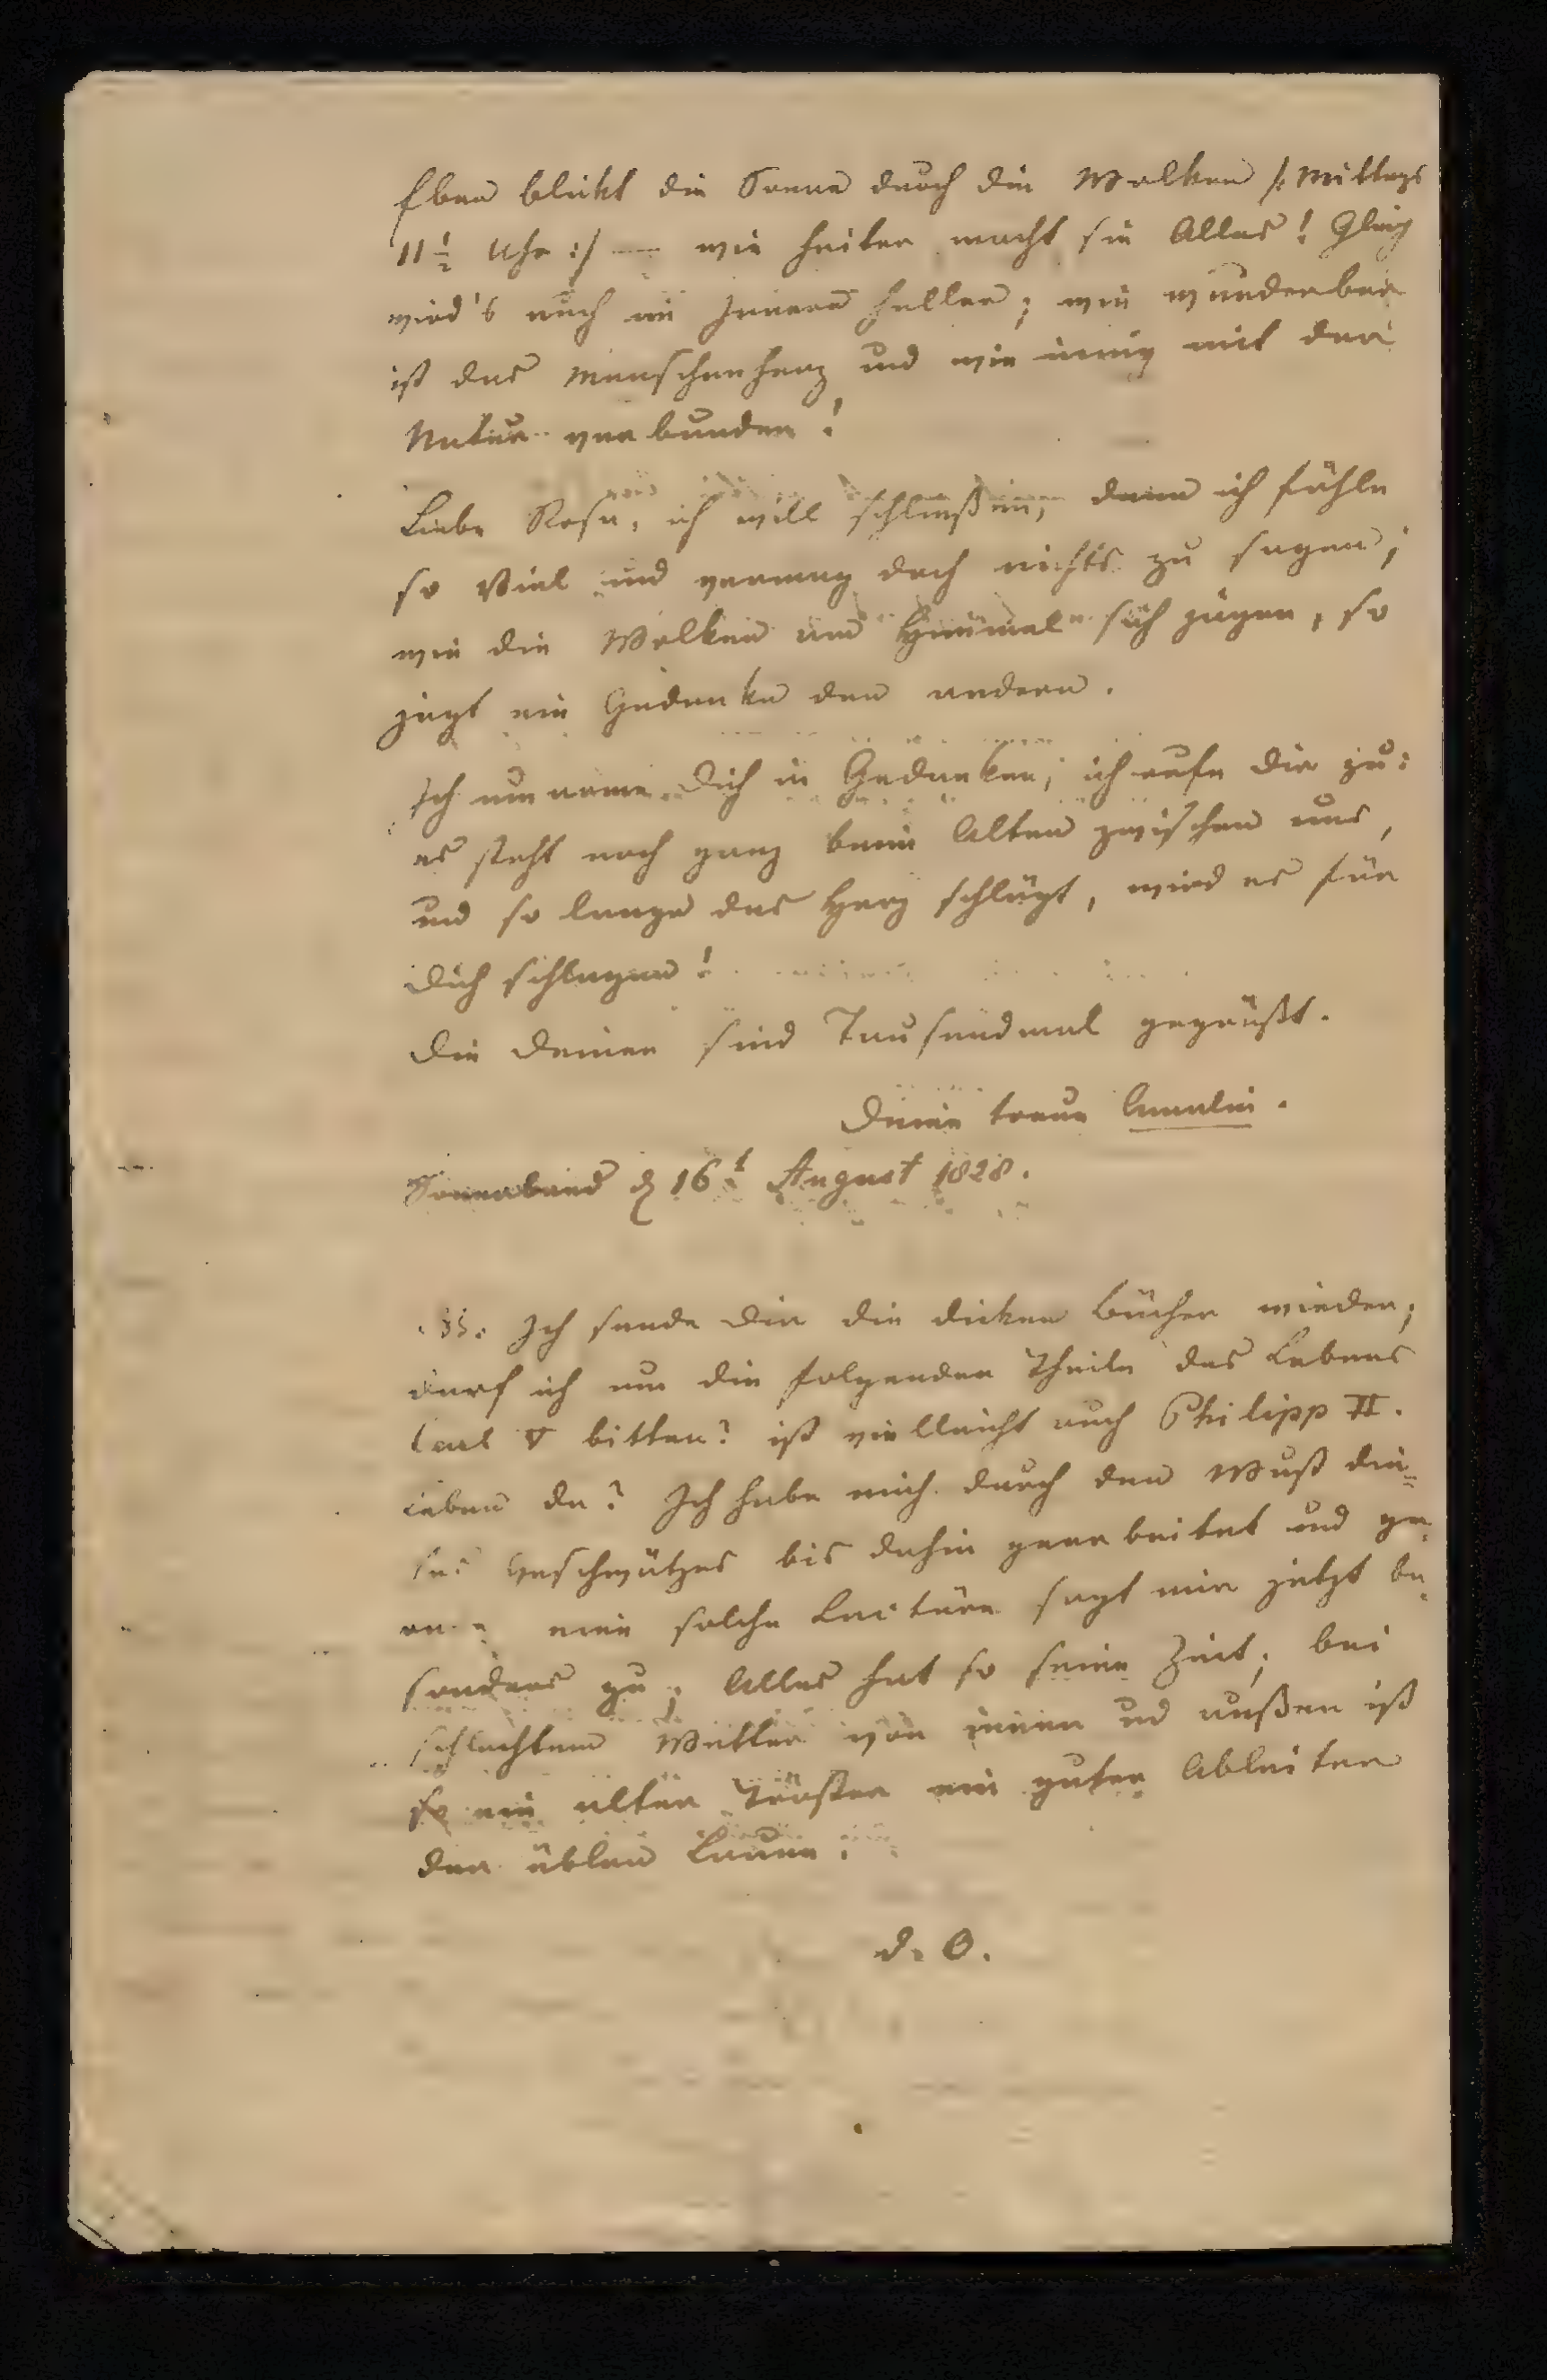 Eben blickt die Sonne durch die Wolken /: Mittags
11 ½ Uhr :/ — wie heiter macht sie Alles! Gleich
wird's auch im Innern heller; wie wunderbar
ist das Menschenherz und wie innig mit der
Natur verbunden!
Liebe Rosa, ich will schließen, denn ich fühle
so Viel und vermag doch nichts zu sagen;
wie die Wolken am Himmel sich jagen, so
jagt ein Gedanke den andern.
Ich umarme Dich in Gedanken; ich rufe Dir zu:
es steht noch ganz beim Alten zwischen uns,
und so lange das Herz schlägt, wird es für
Dich schlagen!
Die Deinen sind Tausendmal gegrüßt.
Deine treue Amalie.
Sonnabend d 16t August 1828.
Ich sende Dir die dicken Bücher wieder;
darf ich um die folgenden Theile des Lebens
Carl V bitten? ist vielleicht auch Philipp II.
Leben da? Ich habe mich durch den Wust die-
ses Geschwätzes bis dahin gearbeitet und ge-
eine solche Lectüre sagt mir jetzt be-
sonders zu; Alles hat so seine Zeit; bei
schlechtem Wetter von innen und außen ist
so ein alter Tröster ein guter Ableiter
der üblen Laune.
d. O.